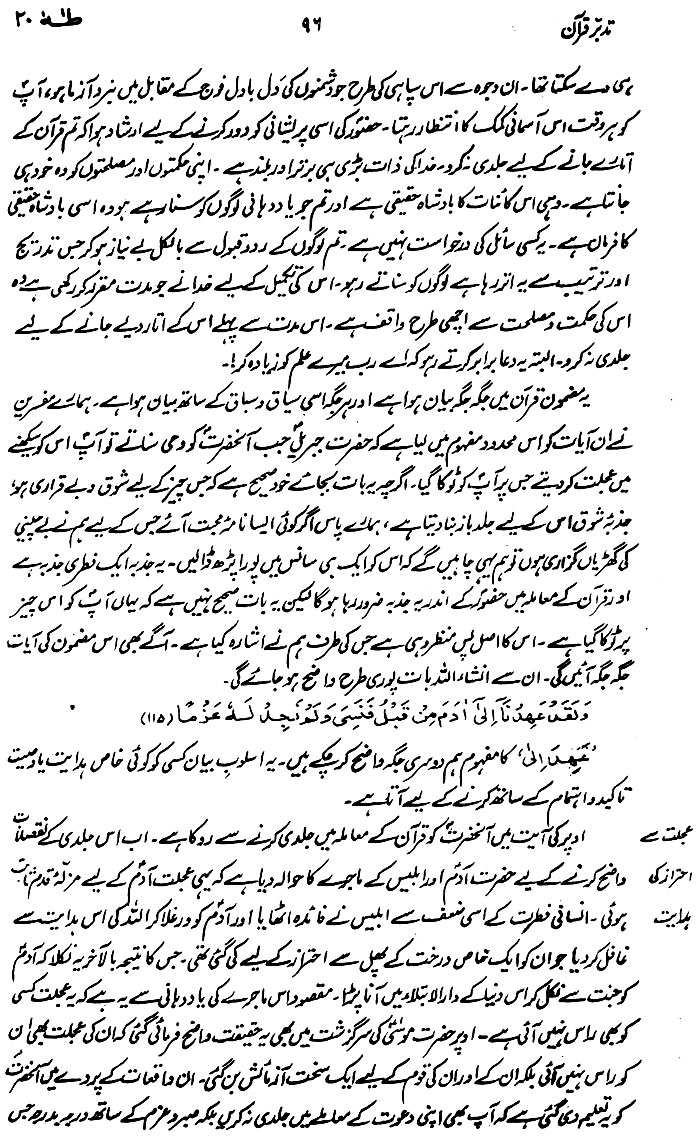 تدبرِ قرآن ۹۶ طٰهٰ ۲۰
ہی دے سکتا تھا۔ ان وجوہ سے اس سپاہی کی طرح جو دشمنوں کی دَل بادل فوج کے مقابل میں نبرد آزما ہو، آپؐ
کو ہر وقت اس آسمانی کمک کا انتظار رہتا۔ حضورؐ کی اسی پریشانی کو دور کرنے کے لیے ارشاد ہوا کہ تم قرآن کے
اتارے جانے کے لیے جلدی نہ کرو۔ خدا کی ذات بڑی ہی برتر اور بلند ہے۔ اپنی حکمتوں اور مصلحتوں کو وہ خود ہی
جانتا ہے۔ وہی اس کائنات کا بادشاہِ حقیقی ہے اور تم جو یاددہانی لوگوں کو سنا رہے ہو وہ اسی بادشاہِ حقیقی
کا فرمان ہے۔ یہ کسی سائل کی درخواست نہیں ہے۔ تم لوگوں کے ردوقبول سے بالکل بے نیاز ہو کر جس تدریج
اور ترتیب سے یہ اتر رہا ہے لوگوں کو سناتے رہو۔ اس کی تکمیل کے لیے خدا نے جو مدت مقرر کر رکھی ہے وہ
اس کی حکمت و مصلحت سے اچھی طرح واقف ہے۔ اس مدت سے پہلے اس کے اتار دیے جانے کے لیے
جلدی نہ کرو۔ البتہ یہ دعا برابر کرتے رہو کہ اے رب میرے علم کو زیادہ کر!۔
یہ مضمون قرآن میں جگہ جگہ بیان ہوا ہے اور ہر جگہ اسی سیاق و سباق کے ساتھ بیان ہوا ہے۔ ہمارے مفسرین
نے ان آیات کو اس محدود مفہوم میں لیا ہے کہ حضرت جبریلؑ جب آنحضرتؐ کو وحی سناتے تو آپؐ اس کو سیکھنے
میں عجلت کر دیتے جس پر آپؐ کو ٹوکا گیا۔ اگرچہ یہ بات بجائے خود صحیح ہے کہ جس چیز کے لیے شوق و بے قراری ہو،
جذبۂ شوق اس کے لیے جلد باز بنا دیتا ہے، ہمارے پاس اگر کوئی ایسا نامۂ محبت آئے جس کے لیے ہم نے بے چینی
کی گھڑیاں گزاری ہوں تو ہم یہی چاہیں گے کہ اس کو ایک ہی سانس میں پورا پڑھ ڈالیں۔ یہ جذبہ ایک فطری جذبہ ہے
اور قرآن کے معاملہ میں حضورؐ کے اندر یہ جذبہ ضرور رہا ہو گا لیکن یہ بات صحیح نہیں ہے کہ یہاں آپؐ کو اس چیز
پر ٹوکا گیا ہے۔ اس کا اصل پس منظر وہی ہے جس کی طرف ہم نے اشارہ کیا ہے۔ آگے بھی اس مضمون کی آیات
جگہ جگہ آئیں گی۔ ان سے انشاء اللہ بات پوری طرح واضح ہو جائے گی۔
وَلَقَدْ عَهِدْنَآ اِلٰٓى اٰدَمَ مِنْ قَبْلُ فَنَسِىَ وَلَمْ نَجِدْ لَهٗ عَزْمًا (۱۱۵)
’عَهِدَ اِلٰى‘ کا مفہوم ہم دوسری جگہ واضح کر چکے ہیں۔ یہ اسلوبِ بیان کسی کو کوئی خاص ہدایت یا وصیت
تاکید و اہتمام کے ساتھ کرنے کے لیے آتا ہے۔
عجلت سے
احتراز کی
ہدایت
اوپر کی آیت میں آنحضرتؐ کو قرآن کے معاملہ میں جلدی کرنے سے روکا ہے۔ اب اس جلدی کے نقصانات
واضح کرنے کے لیے حضرت آدمؑ اور ابلیس کے ماجرے کا حوالہ دیا ہے کہ یہی عجلت آدمؑ کے لیے مزلّۂ قدم ثابت
ہوئی۔ انسانی فطرت کے اسی ضعف سے ابلیس نے فائدہ اٹھایا اور آدمؑ کو ورغلا کر اللہ کی اس ہدایت سے
غافل کر دیا جو ان کو ایک خاص درخت کے پھل سے احتراز کے لیے کی گئی تھی۔ جس کا نتیجہ بالآخر یہ نکلا کہ آدمؑ
کو جنت سے نکل کر اس دنیا کے دارالابتلاء میں آنا پڑا۔ مقصود اس ماجرے کی یاددہانی سے یہ ہے کہ یہ عجلت کسی
کو بھی راس نہیں آئی ہے۔ اوپر حضرت موسیٰؑ کی سرگزشت میں بھی یہ حقیقت واضح فرمائی گئی کہ ان کی عجلت بھی ان
کو راس نہیں آئی بلکہ ان کے اور ان کی قوم کے لیے ایک سخت آزمائش بن گئی۔ ان واقعات کے پردے میں آنحضرتؐ
کو یہ تعلیم دی گئی ہے کہ آپ بھی اپنی دعوت کے معاملے میں جلدی نہ کریں بلکہ صبر و عزم کے ساتھ درجہ بدرجہ جس